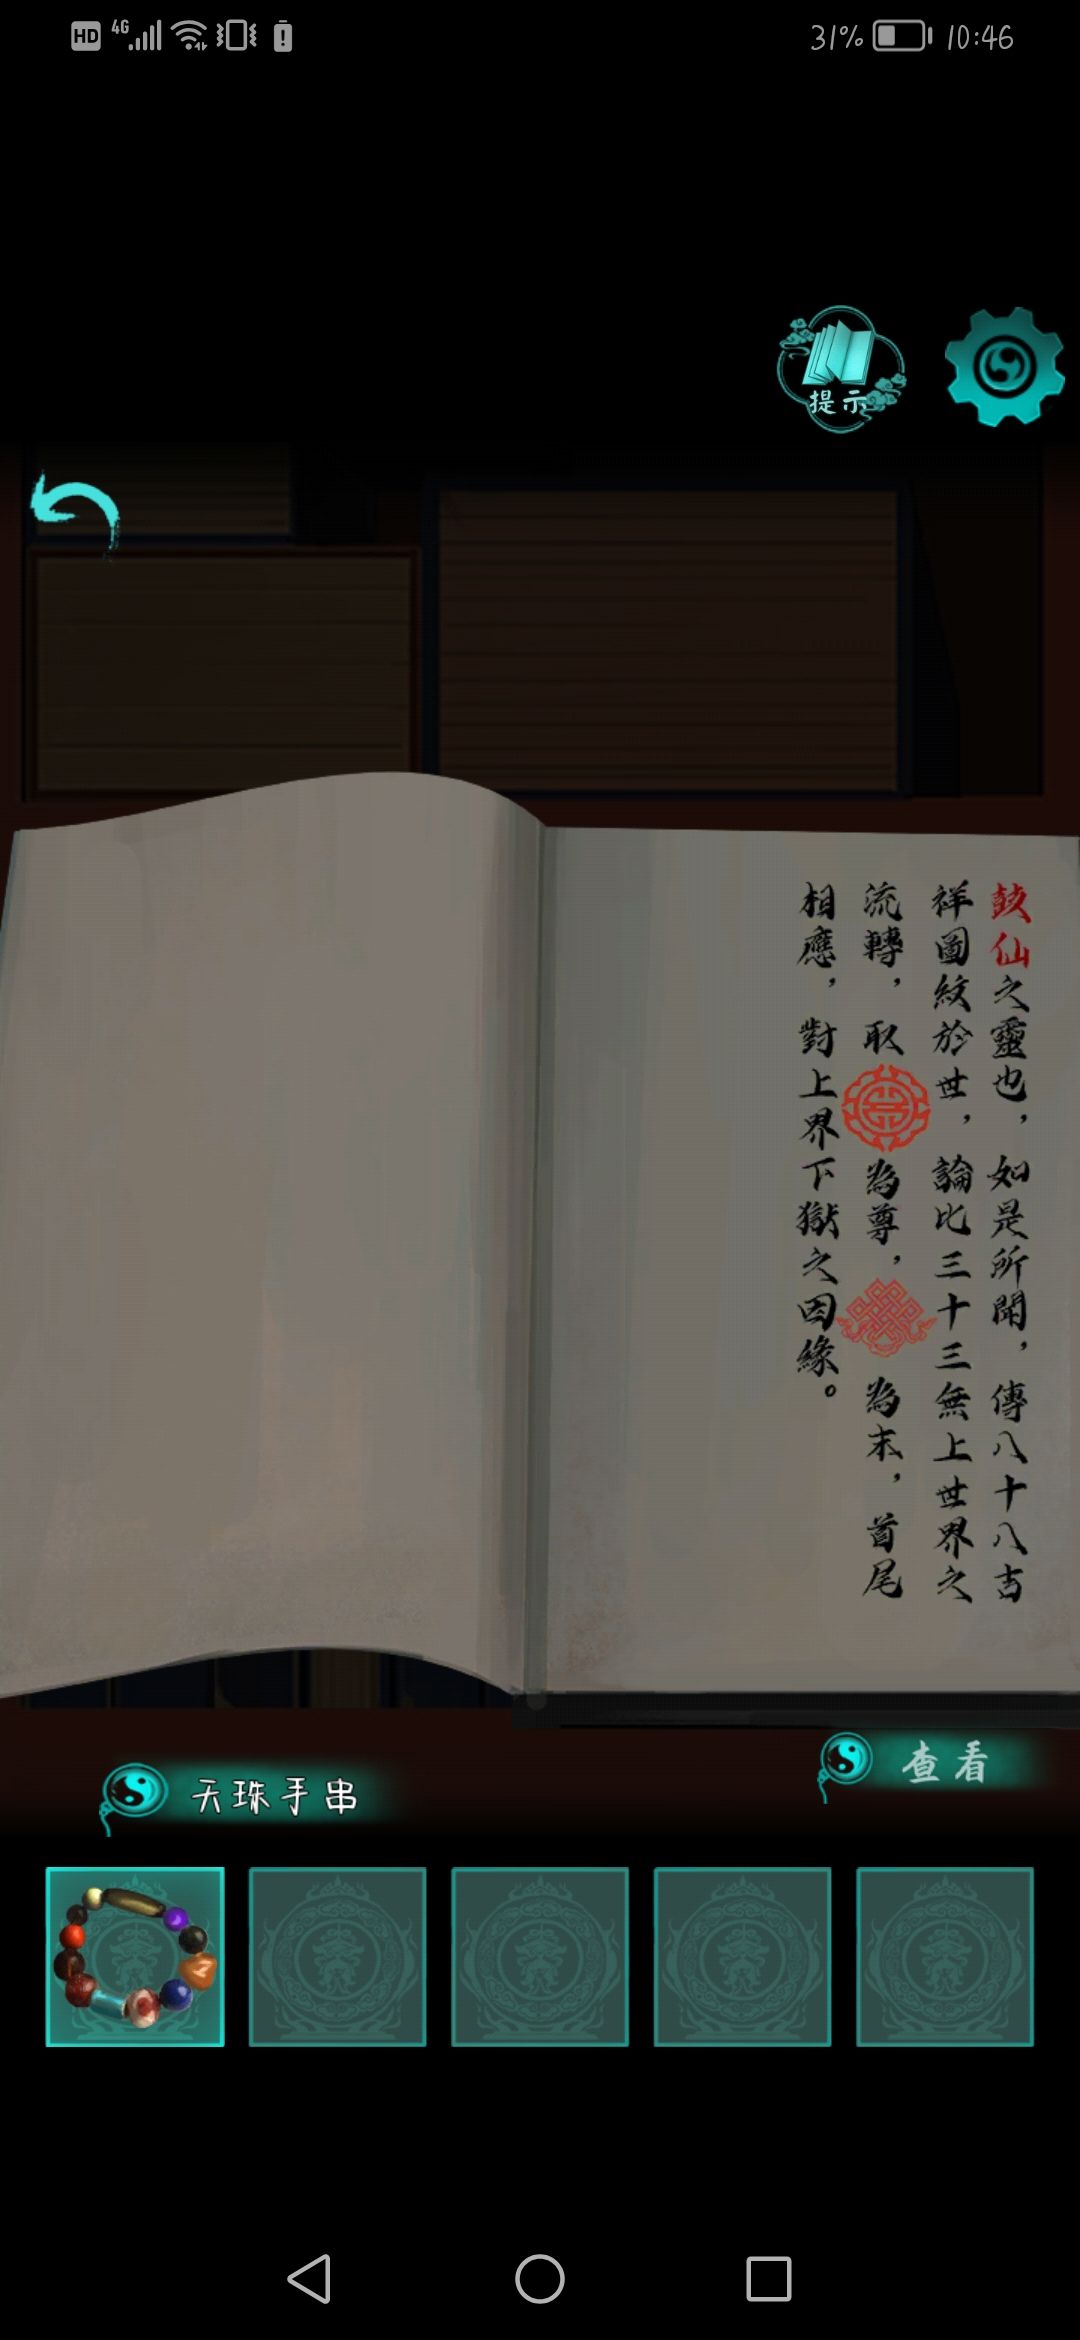 HD 4G 31% 10:46
提示
鼓仙之靈也，如是所聞，傳八十八吉
祥圖紋於世，論比三十三無上世界之
流轉，取為尊，為末，首尾
相應，對上界下獄之因緣。
天珠手串
查看